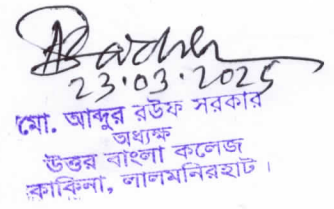 23.03.2025
মো. আব্দুর রউফ সরকার
অধ্যক্ষ
উত্তর বাংলা কলেজ
কাকিনা, লালমনিরহাট।